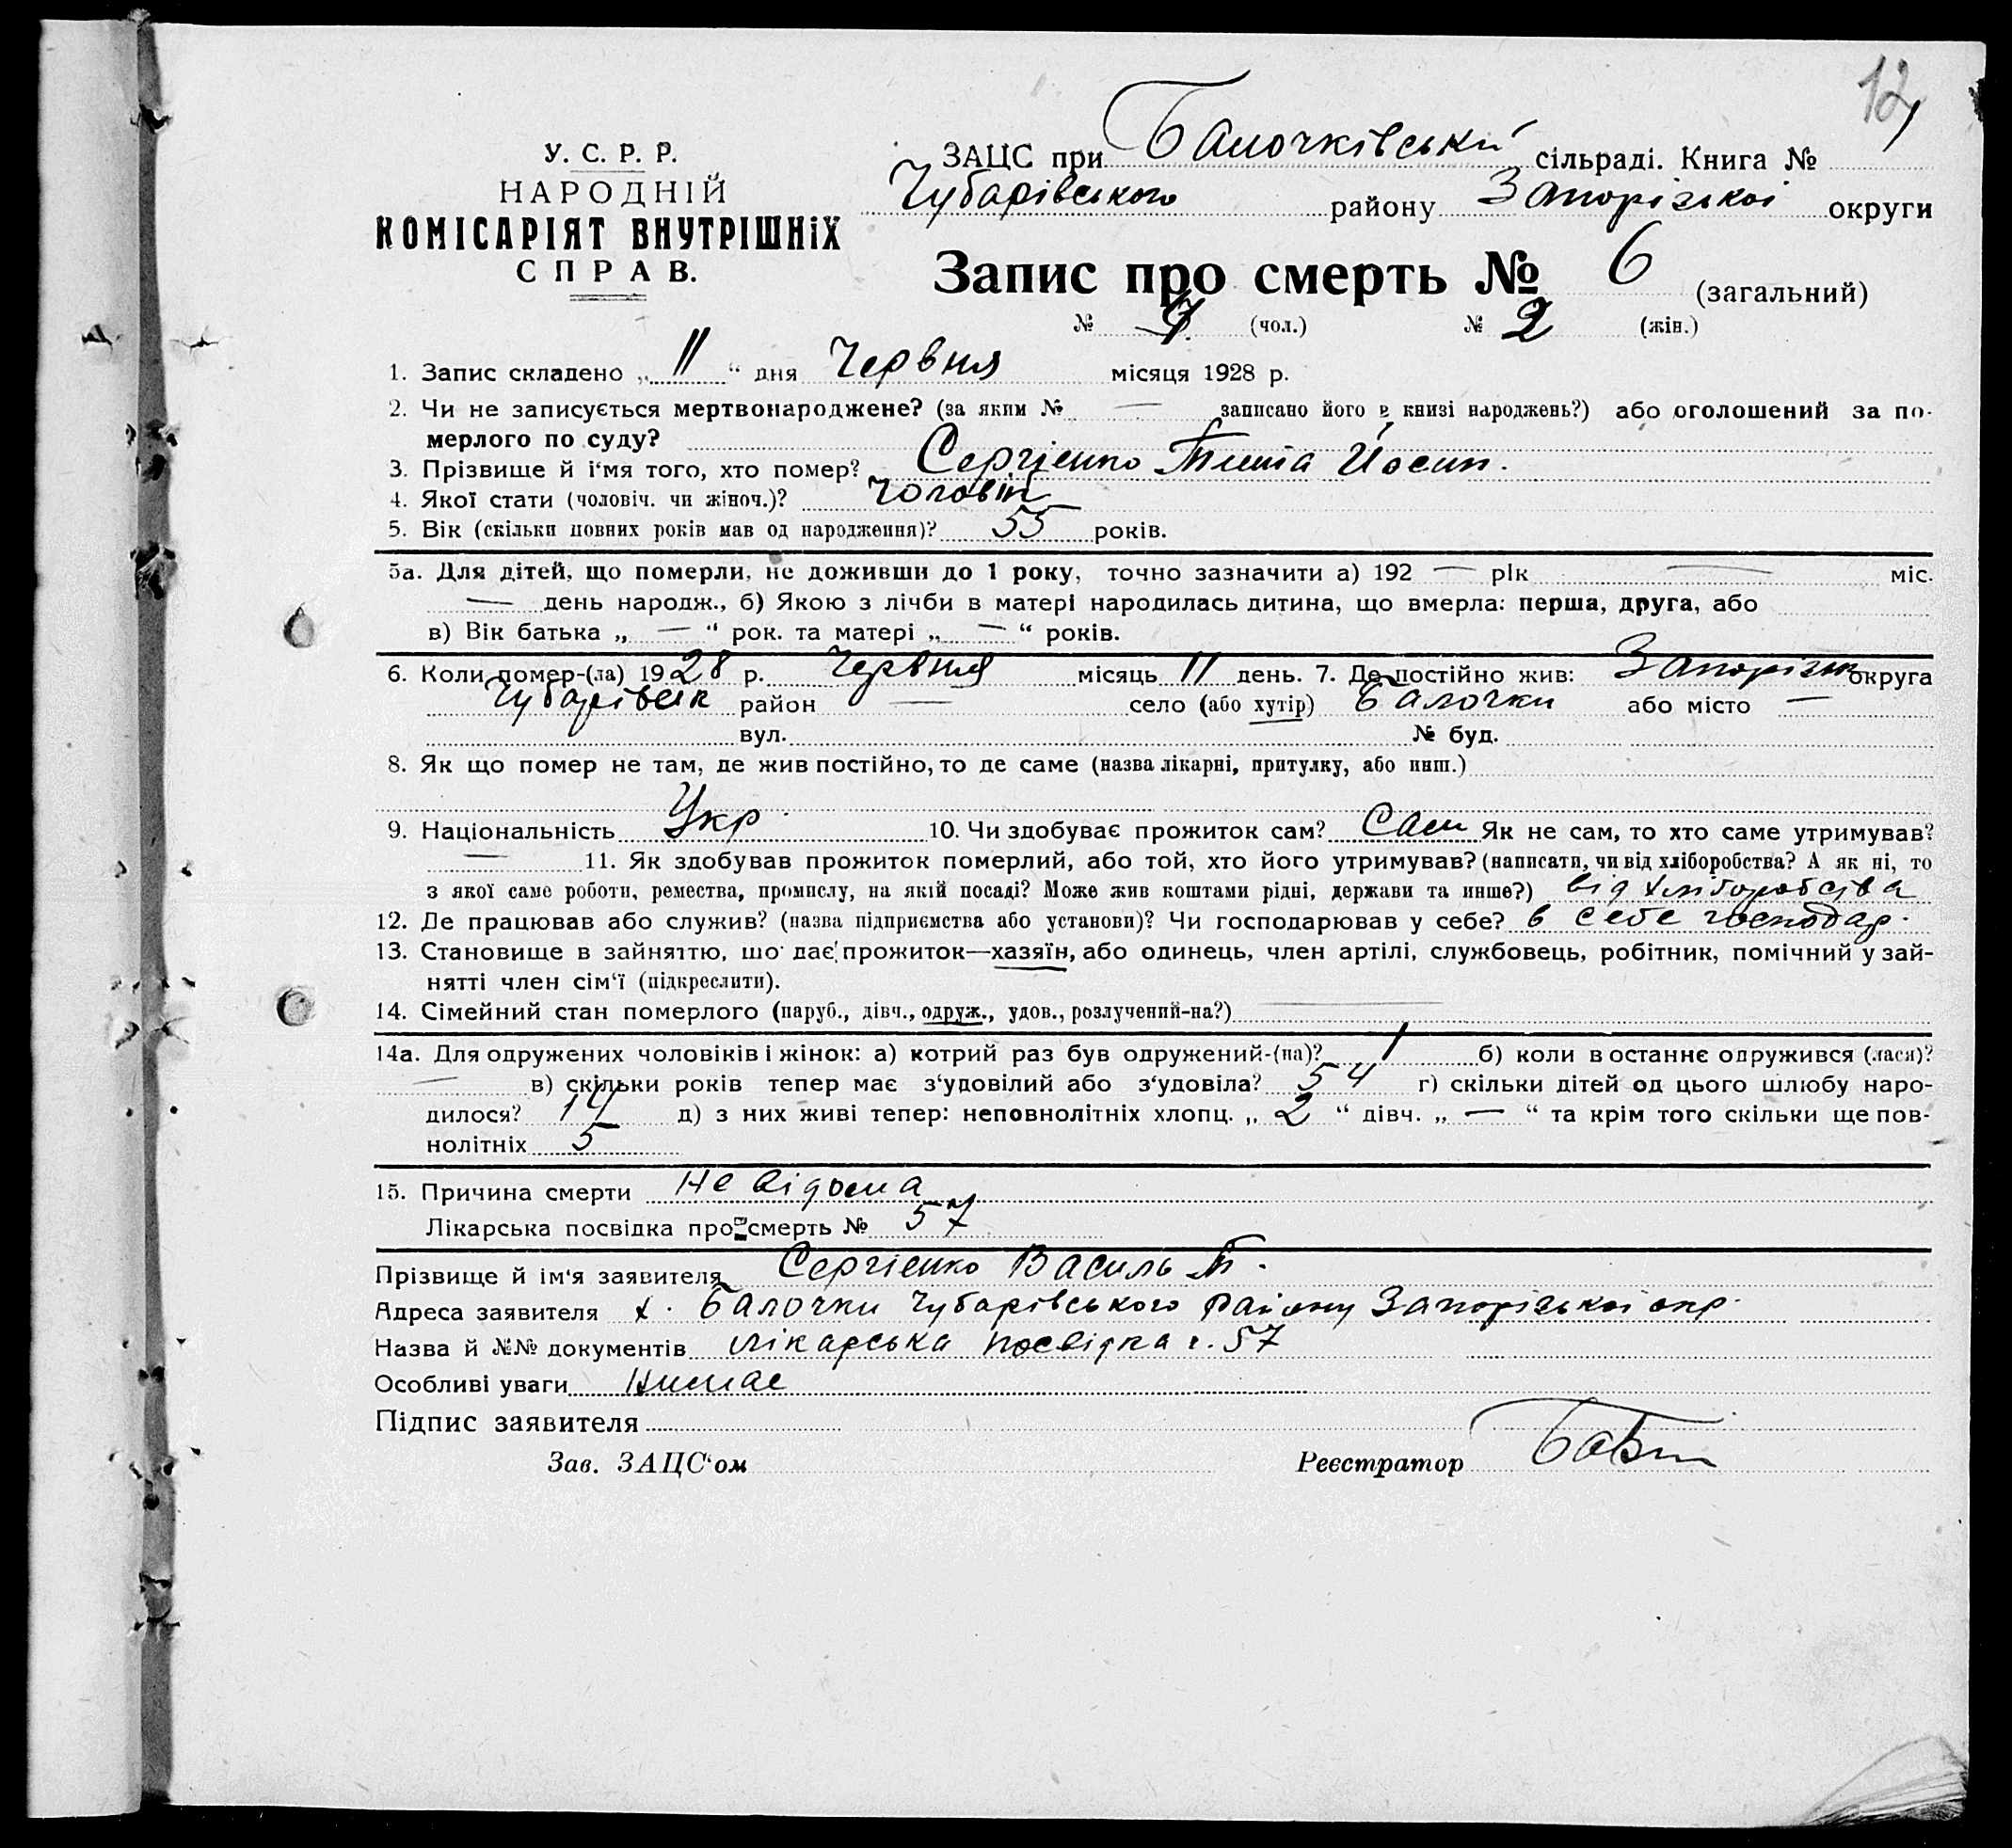 12
У. С. Р. Р.
НАРОДНІЙ
КОМІСАРІЯТ ВНУТРІШНіХ
СПРАВ.
ЗАЦС при Балочківській сільраді. Книга №
Чубарівського району Запорізької округи
Запис про смерть № 6 (загальний)
№ (чол.) № 2 (жін.)
1. Запис складено „ 11 “ дня Червня місяця 1928 р.
2. Чи не записується мертвонароджене? (за яким № — записано його в книзі народжень?) або оголошений за по-
мерлого по суду?
3. Прізвище й і‘мя того, хто помер? Сергієнко Йосип.
4. Якої стати (чоловіч. чи жіноч.)? Чоловік
5. Вік (скільки повних років мав од народження)? 55 років.
5а. Для дітей, що померли, не доживши до 1 року, точно зазначити а) 192 — рік — міс.
— день народж., б) Якою з лічби в матері народилась дитина, що вмерла: перша, друга, або
в) Вік батька „ — “ рок. та матері „ — “ років.
6. Коли помер-(ла) 1928 р. Червня місяць 11 день. 7. Де постійно жив: Запорізьк округа
Чубарівськ район — село (або хутір) Балочки або місто —
вул. № буд.
8. Як що помер не там, де жив постійно, то де саме (назва лікарні, притулку, або инш.)
9. Національність Укр 10. Чи здобуває прожиток сам? Сам Як не сам, то хто саме утримував?
— 11. Як здобував прожиток померлий, або той, хто його утримував? (написати, чи від хліборобства? А як ні, то
з якої саме роботи, ремества, промислу, на якій посаді? Може жив коштами рідні, держави та инше?) від хліборобства
12. Де працював або служив? (назва підприємства або установи)? Чи господарював у себе? в себе господар.
13. Становище в зайняттю, що дає прожиток—хазяїн, або одинець, член артілі, службовець, робітник, помічний у зай-
нятті член сім‘ї (підкреслити).
14. Сімейний стан померлого (паруб., дівч., одруж., удов., розлучений-на?) —
14а. Для одружених чоловіків і жінок: а) котрий раз був одружений-(на)? 1 б) коли в останнє одружився (лася)?
— в) скільки років тепер має з‘удовілий або з‘удовіла? 54 г) скільки дітей од цього шлюбу наро-
дилося? 14 д) з них живі тепер: неповнолітніх хлопц. „ 2 “ дівч. „ — “ та крім того скільки ще пов-
нолітніх 5
15. Причина смерти Не відома
Лікарська посвідка про смерть № 57
Прізвище й ім‘я заявителя Сергієнко Василь Т.
Адреса заявителя х. Балочки Чубарівського Району Запорізької окр.
Назва й №№ документів лікарська посвідка ч. 57
Особливі уваги Нимає
Підпис заявителя
Зав. ЗАЦС‘ом Реєстратор